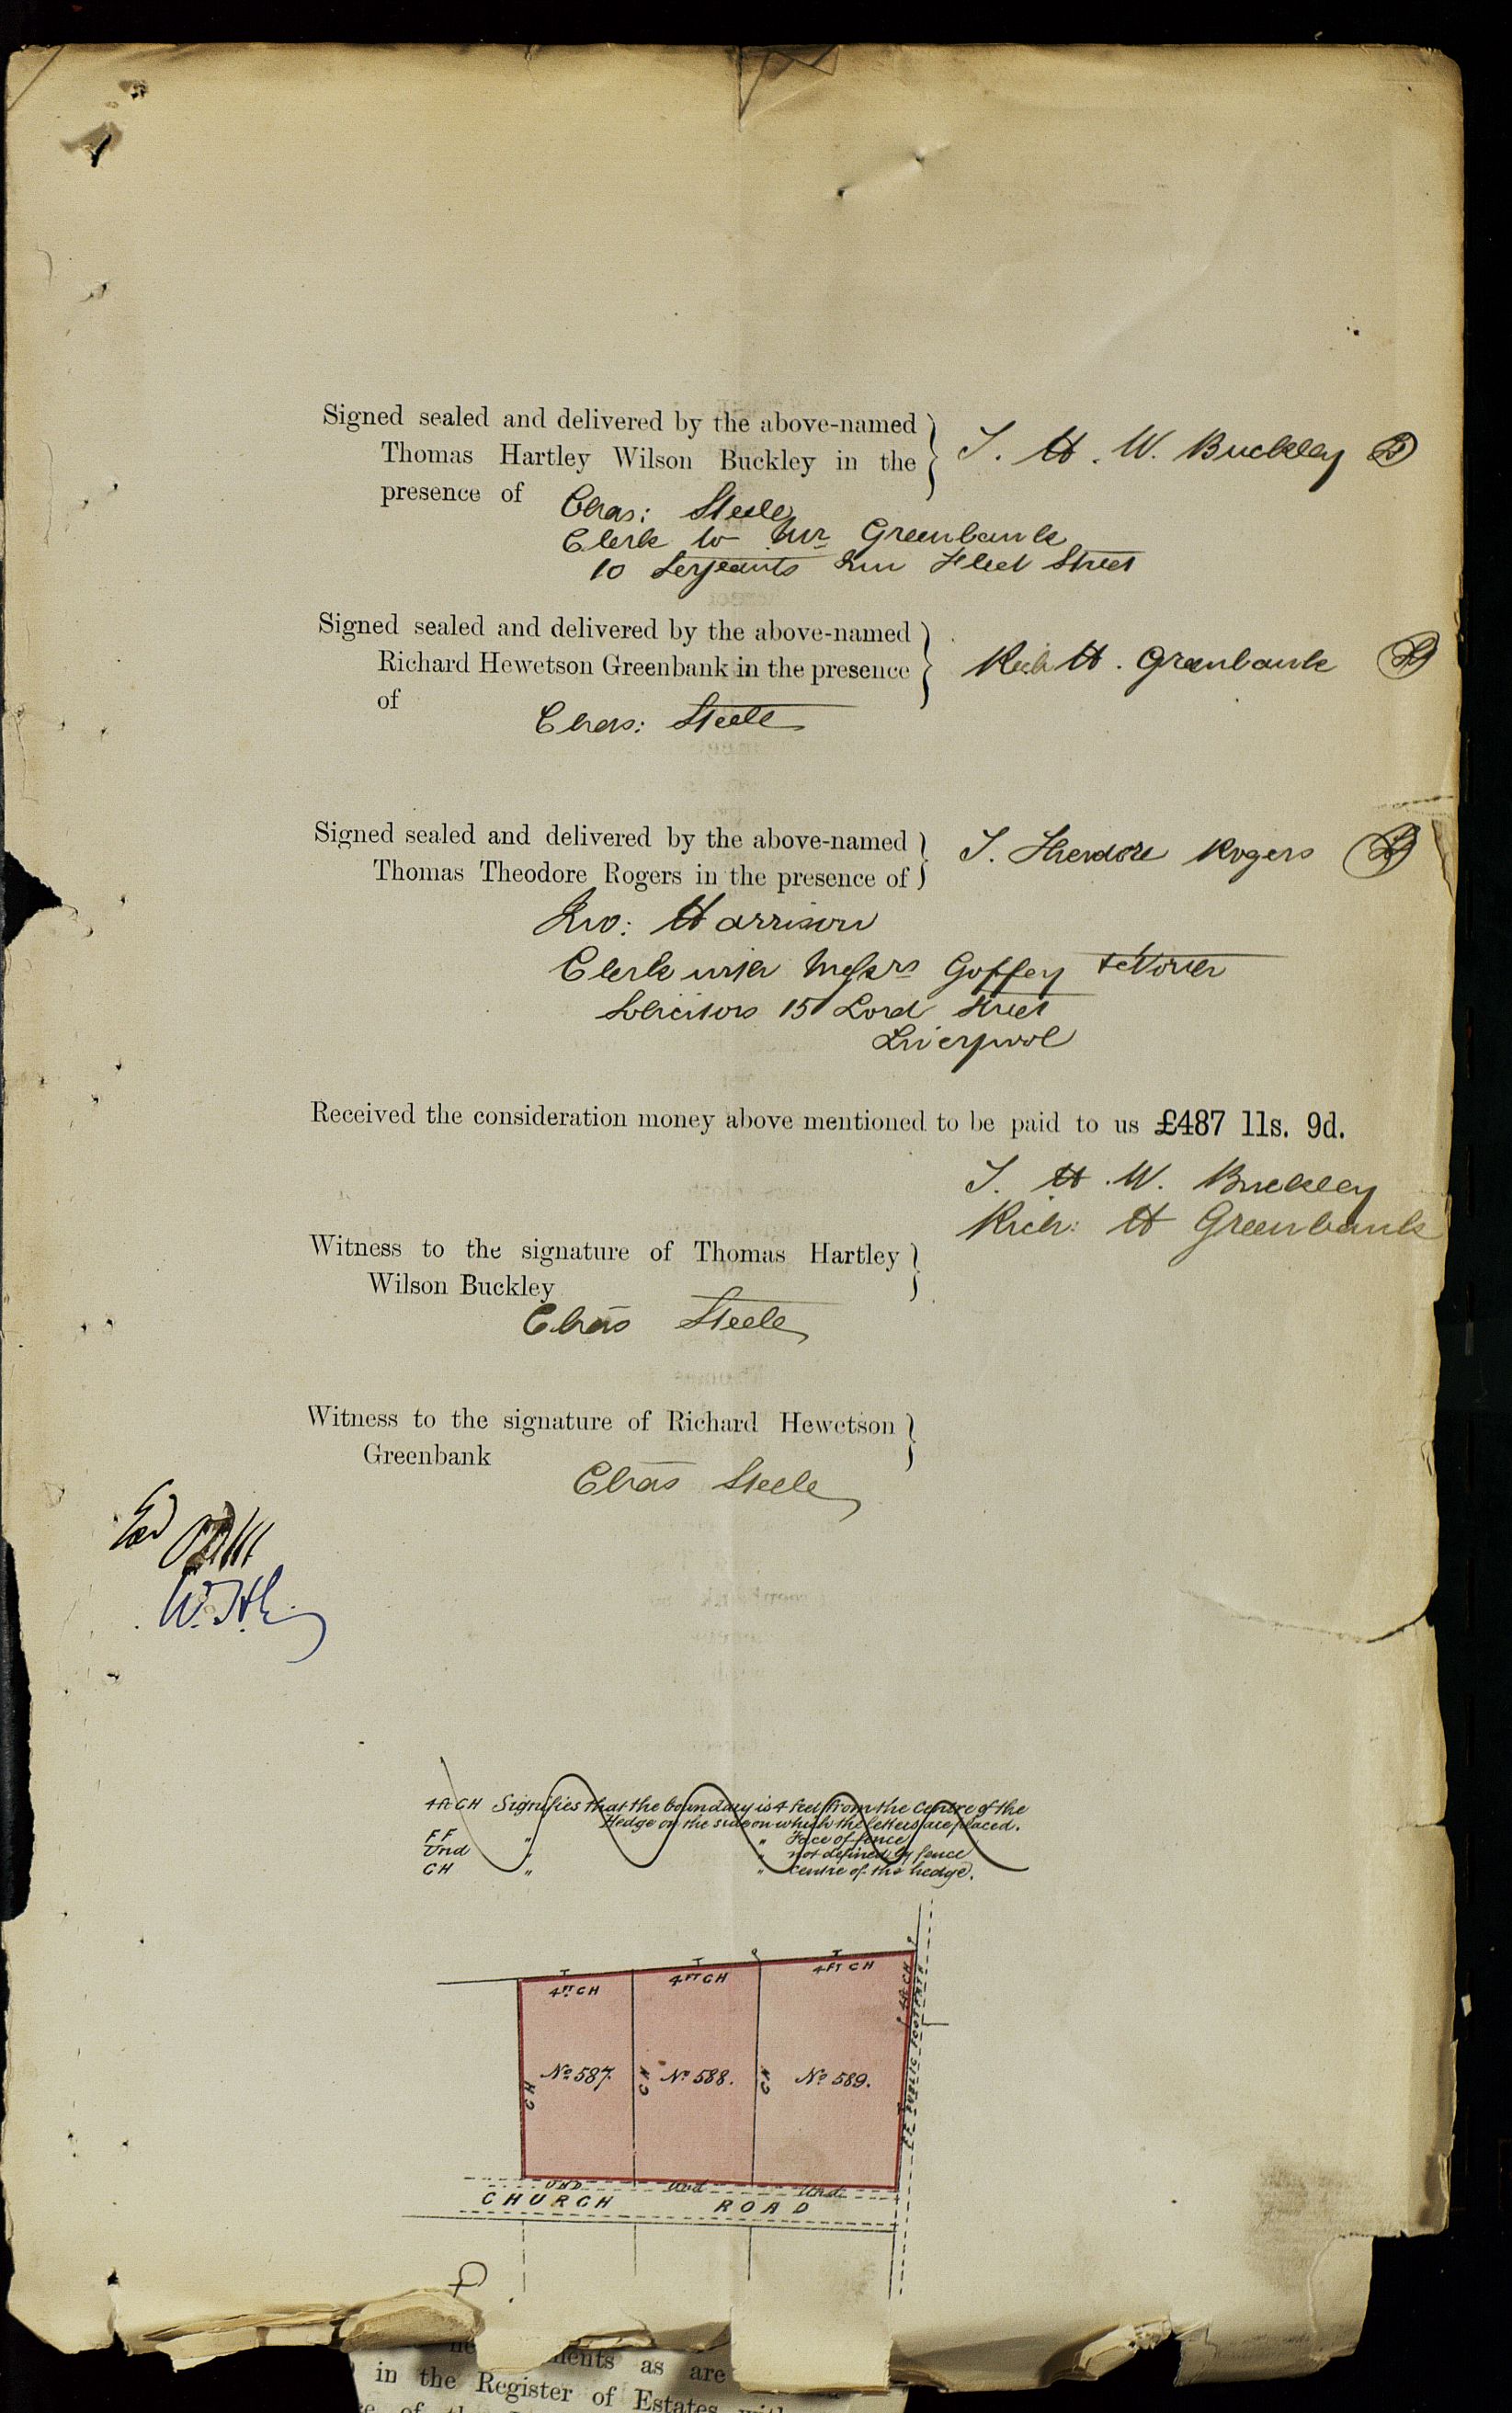 Signed sealed and delivered by the above-named
Thomas Hartley Wilson Buckley in the
presence of
T. H. W. Buckley
Chas: Steele
Clerk to Mr Greenbank
10 Serjeants Inn Fleet Street
Signed sealed and delivered by the above-named
Richard Hewetson Greenbank in the presence
of
Rich H. Greenbank
Chas: Steele
Signed sealed and delivered by the above-named
Thomas Theodore Rogers in the presence of
T. Theodore Rogers
Jno: Harrison
Clerk with Messrs Goffey
Solicitors 15 Lord Street
Liverpool
Received the consideration money above mentioned to be paid to us £487 11s. 9d.
T. H. W. Buckley
Rich: H Greenbank
Witness to the signature of Thomas Hartley
Wilson Buckley
Chas Steele
Witness to the signature of Richard Hewetson
Greenbank
Chas Steele
4ft CH Signifies that the boundary is 4 feet from the Centre of the
Hedge on the side on which the letters are placed.
FF " " Face of fence
Und " " not defined by fence
CH " " Centre of the hedge.
4FT CH 4FT CH 4FT CH
4ft CH
CH No 587. CH No 588. CH No 589.
FF PUBLIC FOOTPATH
UND Und Und
CHURCH ROAD
ments as are
in the Register of Estates with
of